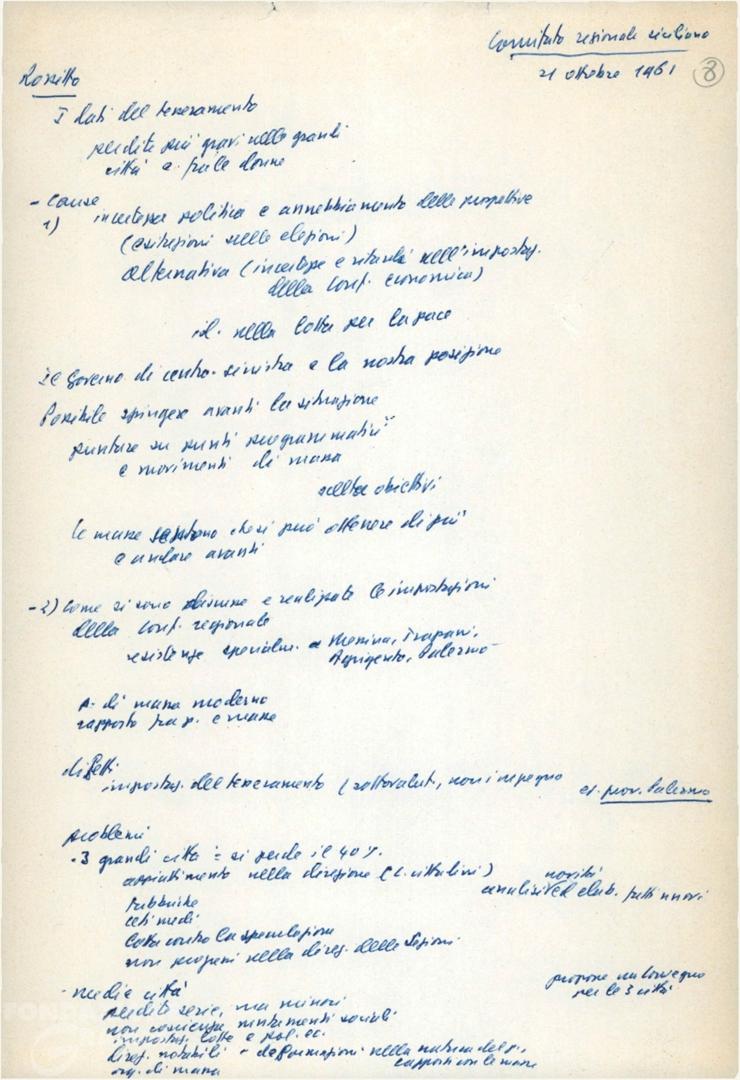 Comitato regionale siciliano
21 ottobre 1961 8
Rossitto
I dati del tesseramento
perdite più gravi nelle grandi
città e fra le donne
- Cause
1) incertezza politica e annebbiamento delle prospettive
(esitazioni nelle elezioni)
alternativa (incertezze e ritardi nell'impostaz.
della Conf. economica)
id. nella lotta per la pace
Il Governo di centro-sinistra e la nostra posizione
Possibile spingere avanti la situazione
puntare su punti programmatici
e movimenti di massa
scelta obiettivi
le masse sentono che si può ottenere di più
e andare avanti
- 2) Come si sono discusse e realizzate le impostazioni
della Conf. regionale
resistenze specialm. a Messina, Trapani,
Agrigento, Palermo
p. di massa moderno
rapporto fra p. e masse
difetti
impostaz. del tesseramento (sottovalut., non impegno es. prov. Palermo
problemi
- 3 grandi città = si perde il 40%
appiattimento nella direzione (C. cittadini) novità
analisi ed elab. fatti nuovi
fabbriche
ceti medi
lotta contro la speculazione
non progressi nella direz. delle Sezioni
propone un Convegno
per le 3 città
- medie città
perdite serie, ma minori
non coscienza mutamenti sociali
impostaz. lotte e pol. ec.
direz. notabili - deformazioni nella natura del p.,
org. di massa rapporti con le masse